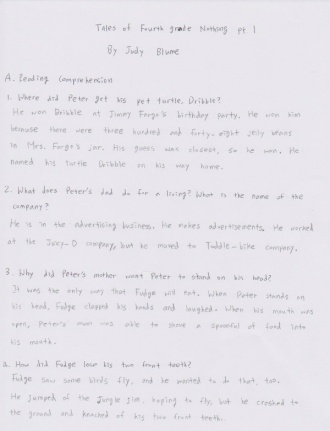 Tales of Fourth grade Nothing pt 1
By Judy Blume
A. Reading Comprehension
1. Where did Peter get his pet turtle, Dribble?
He won Dribble at Jimmy Fargo's birthday party. He won him
because there were three hundred and forty-eight jelly beans
in Mrs. Fargo's jar. His guess was closest, so he won. He
named his turtle Dribble on his way home.
2. What does Peter's dad do for a living? What is the name of the
company?
He is in the advertising business. He makes advertisements. He worked
at the Juicy-O company, but he moved to Toddle-bike company.
3. Why did Peter's mother want Peter to stand on his head?
It was the only way that Fudge will eat. When Peter stands on
his head, Fudge clapped his hands and laughed. When his mouth was
open, Peter's mom was able to some a spoonful of food into
his mouth.
a. How did Fudge lose his two front teeth?
Fudge saw some birds fly, and he wanted to do that, too.
He jumped of the Jungle Jim, hoping to fly, but he crashed to
the ground and knocked of his two front teeth.